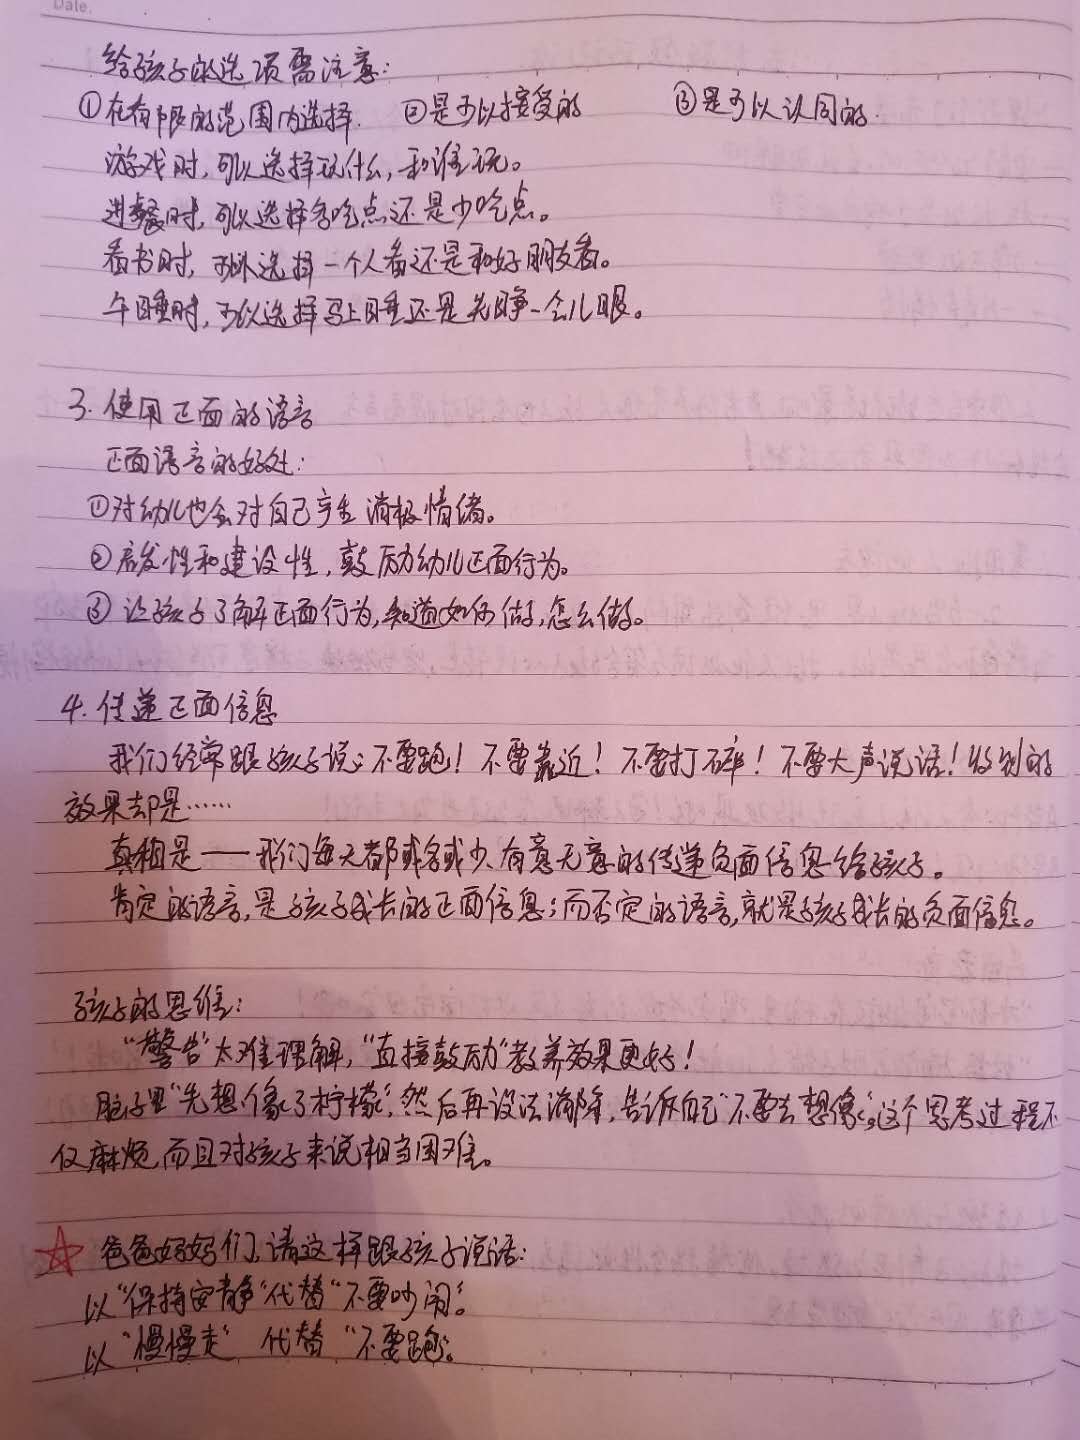 Date.
给孩子的选项需注意:
①在有限的范围内选择. ②是可以接受的 ③是可以认同的.
游戏时,可以选择玩什么,和谁玩。
进餐时,可以选择多吃点还是少吃点。
看书时,可以选择一个人看还是和好朋友看。
午睡时,可以选择马上睡还是先睁一会儿眼。
3. 使用正面的语言
正面语言的好处:
①对幼儿也会对自己产生消极情绪。
②启发性和建设性,鼓励幼儿正面行为。
③让孩子了解正面行为,知道如何做,怎么做。
4. 传递正面信息
我们经常跟孩子说:不要跑!不要靠近!不要打碎!不要大声说话!收到的
效果却是……
真相是——我们每天都或多或少、有意无意的传递负面信息给孩子。
肯定的语言,是孩子成长的正面信息;而否定的语言,就是孩子成长的负面信息。
孩子的思维:
“警告”太难理解,“直接鼓励”教养效果更好!
脑子里“先想像了柠檬”,然后再设法消除,告诉自己“不要去想像”,这个思考过程不
仅麻烦,而且对孩子来说相当困难。
爸爸妈妈们,请这样跟孩子说话:
以“保持安静”代替“不要吵闹”。
以“慢慢走”代替“不要跑”。